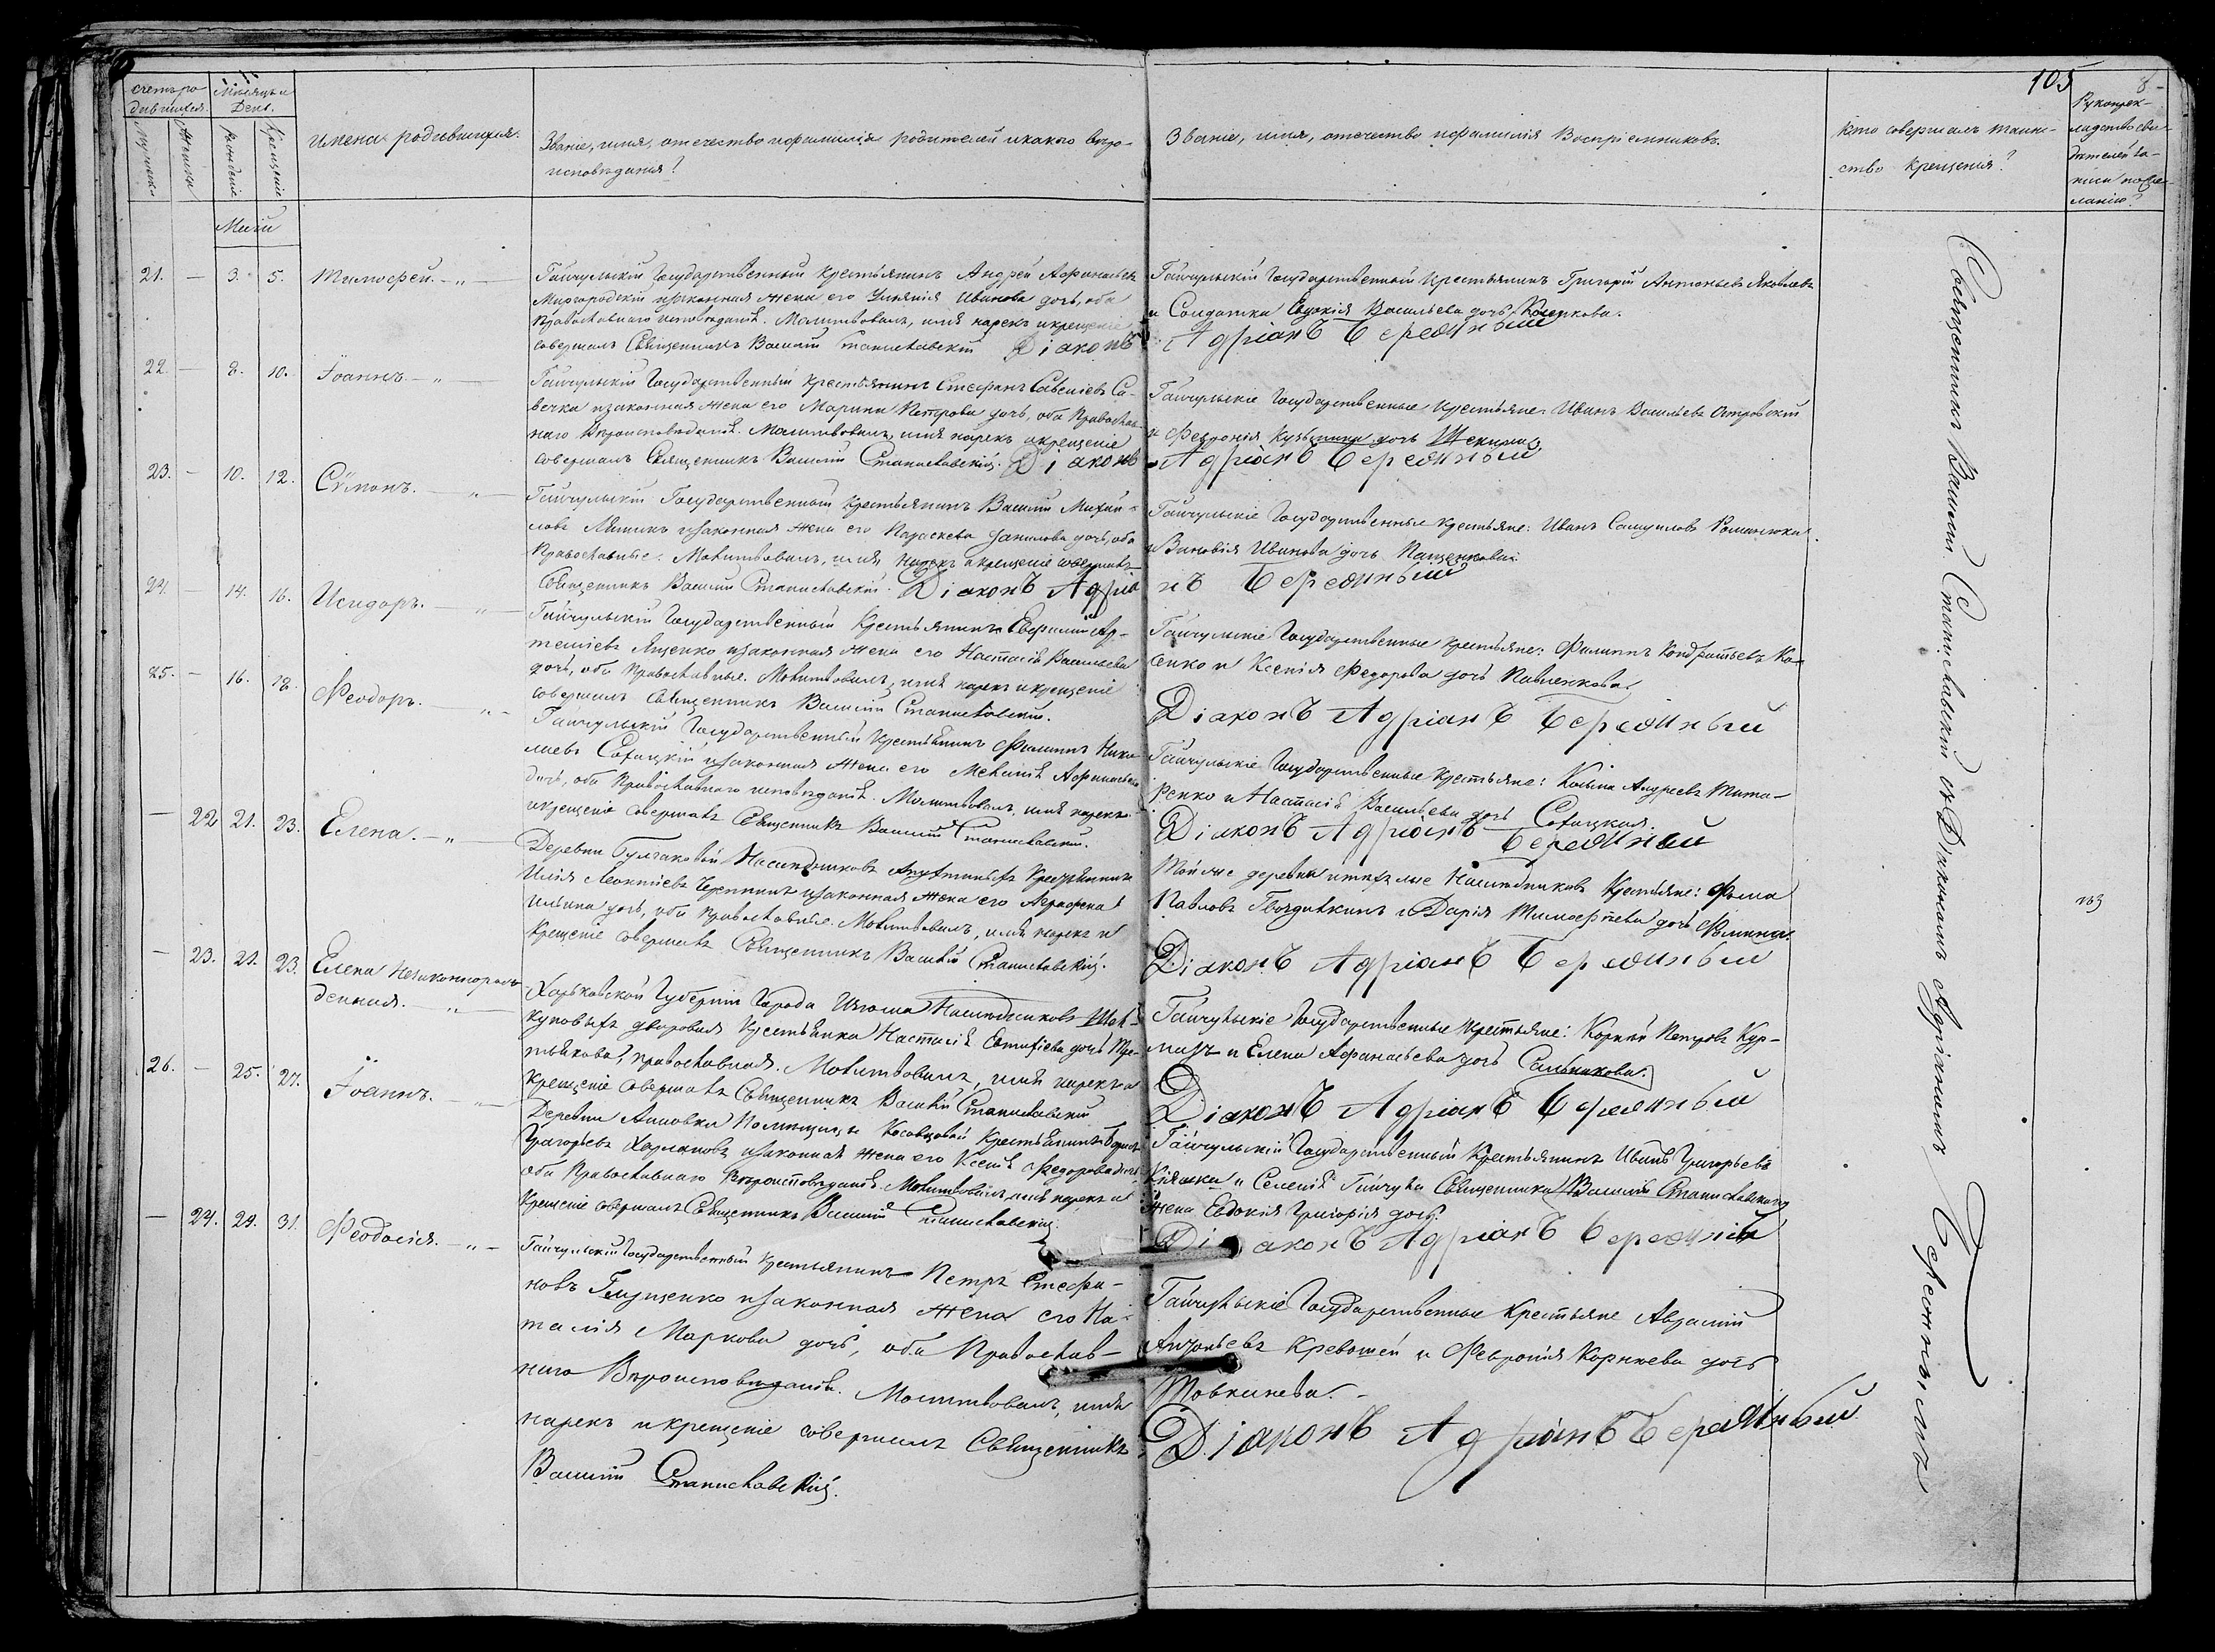 105
8
Счетъ ро-
дившихся.
Мѣсяцъ и
День.
Мужеска
Женска
Рожденіе
Крещеніе
Имена родившихся.
Званіе, имя, отечество и фамилія родителей и какого вѣро-
исповѣданія?
Званіе, имя, отечество и фамилія Воспріемниковъ.
Кто совершалъ таин-
ство крещенія?
Рукоприк-
ладство сви-
дѣтелей за-
писи по же-
ланію?
Маій
21. — 3. 5. Тимофей. — „ —
Гайчульскій Государственный Крестьянинъ Андрей Афанасьевъ
Миргородскій и законная жена его Іванова дочь, оба
Православнаго исповѣданія. Молитвовалъ, имя нарекъ и крещеніе
совершалъ Священникъ Василій Станиславскій Діаконъ
Гайчульскій Государственный Крестьянинъ Григорій Антоньевъ Яковлевъ
и Солдатка Евдокія Васильева дочь
Адріанъ Бережный
22. — 8. 10. Іоаннъ. — „ —
Гайчульскій Государственный Крестьянинъ Стефанъ Савеліевъ Са-
вечка и законная жена его Марина Петрова дочь, оба Православ-
наго Вѣроисповѣданія. Молитвовалъ, имя нарекъ и крещеніе
совершалъ Священникъ Василій Станиславскій. Діаконъ
Гайчульскіе Государственные Крестьяне: Иванъ Васильевъ Островскій
и Февронія Кузьмина дочь
Адріанъ Бережный
23. — 10. 12. Сѵмонъ. — „ —
Гайчульскій Государственный Крестьянинъ Василій Михай-
ловъ и законная жена его Параскева Данилова дочь, оба
Православные. Молитвовалъ, имя нарекъ и крещеніе совершалъ
Священникъ Василій Станиславскій. Діаконъ Адріа
Гайчульскіе Государственные Крестьяне: Иванъ Самуиловъ Романюка
и Зиновія Иванова дочь Пащенкова.
нъ Бережный
24. — 14. 16. Исидоръ. — „ —
Гайчульскій Государственный Крестьянинъ Евфимій Ар-
теміевъ Яценко и законная жена его Настасія Васильева
дочь, оба Православные. Молитвовалъ, имя нарекъ и крещеніе
совершалъ Священникъ Василій Станиславскій.
Гайчульскіе Государственные Крестьяне: Филиппъ Кондратьевъ Ко-
сенко и Ксенія Федорова дочь Павленкова.
Діаконъ Адріанъ Бережный
25. — 16. 18. Феодоръ. — „ —
Гайчульскій Государственный Крестьянинъ Филиппъ Нико-
лаевъ Сотицкій и законная жена его Меланія Афанасьева
дочь, оба Православнаго исповѣданія. Молитвовалъ, имя нарекъ
и крещеніе совершалъ Священникъ Василій Станиславскій.
Гайчульскіе Государственные Крестьяне: Косьма Андреевъ Тита-
ренко и Настасія Васильева дочь Сотицкая.
Діаконъ Адріанъ Бережный
— 22 21. 23. Елена. — „ —
Деревни Булгаковой Наслѣдниковъ Крестьянинъ
Илія Леонтіевъ и законная жена его Агрофена
Ильина дочь, оба Православные. Молитвовалъ, имя нарекъ и
Крещеніе совершалъ Священникъ Василій Станиславскій.
Той же деревни и тѣхъ же Наслѣдниковъ Крестьяне: Фома
Павловъ Гвоздинкинъ и Дарія Тимофѣева дочь Фомина.
Діаконъ Адріанъ Бережный
— 23. 21. 23. Елена Незаконнорож-
денная. — „ —
Харьковской Губерніи Города Изюма Наслѣдниковъ
дворовая Крестьянка Настасія Евтифіева дочь Тре-
тьякова, православная. Молитвовалъ, имя нарекъ и
Крещеніе совершалъ Священникъ Василій Станиславскій
Гайчульскіе Государственные Крестьяне: Корній Петровъ Кур-
мазъ и Елена Афанасьева дочь Сальникова.
Діаконъ Адріанъ Бережный
26. — 25. 27. Іоаннъ. — „ —
Деревни Анновки Помѣщицы Косовцовой Крестьянинъ Борисъ
Григорьевъ Харламовъ и законная жена его Ксенія Федорова дочь
оба Православнаго Вѣроисповѣданія. Молитвовалъ, имя нарекъ и
Крещеніе совершалъ Священникъ Василій Станиславскій.
Гайчульскій Государственный Крестьянинъ Иванъ Григорьевъ
Кіяшка и Селенія Гайчула Священника Василія Станиславскаго
жена Евдокія Григорія дочь.
Діаконъ Адріанъ Бережный
— 24. 29. 31. Феодосія. — „ —
Гайчульскій Государственный Крестьянинъ Петръ Стефа-
новъ Глущенко и законная жена его На-
талія Маркова дочь, оба Православ-
наго Вѣроисповѣданія. Молитвовалъ, имя
нарекъ и крещеніе совершалъ Священникъ
Василій Станиславскій.
Гайчульскіе Государственные Крестьяне Авраамій
Антоньевъ Кривошей и Февронія Корнѣева дочь
Товкачева. —
Діаконъ Адріанъ Бережный
Священникъ Василій Станиславскій съ Діакономъ Адріаномъ Бережнымъ